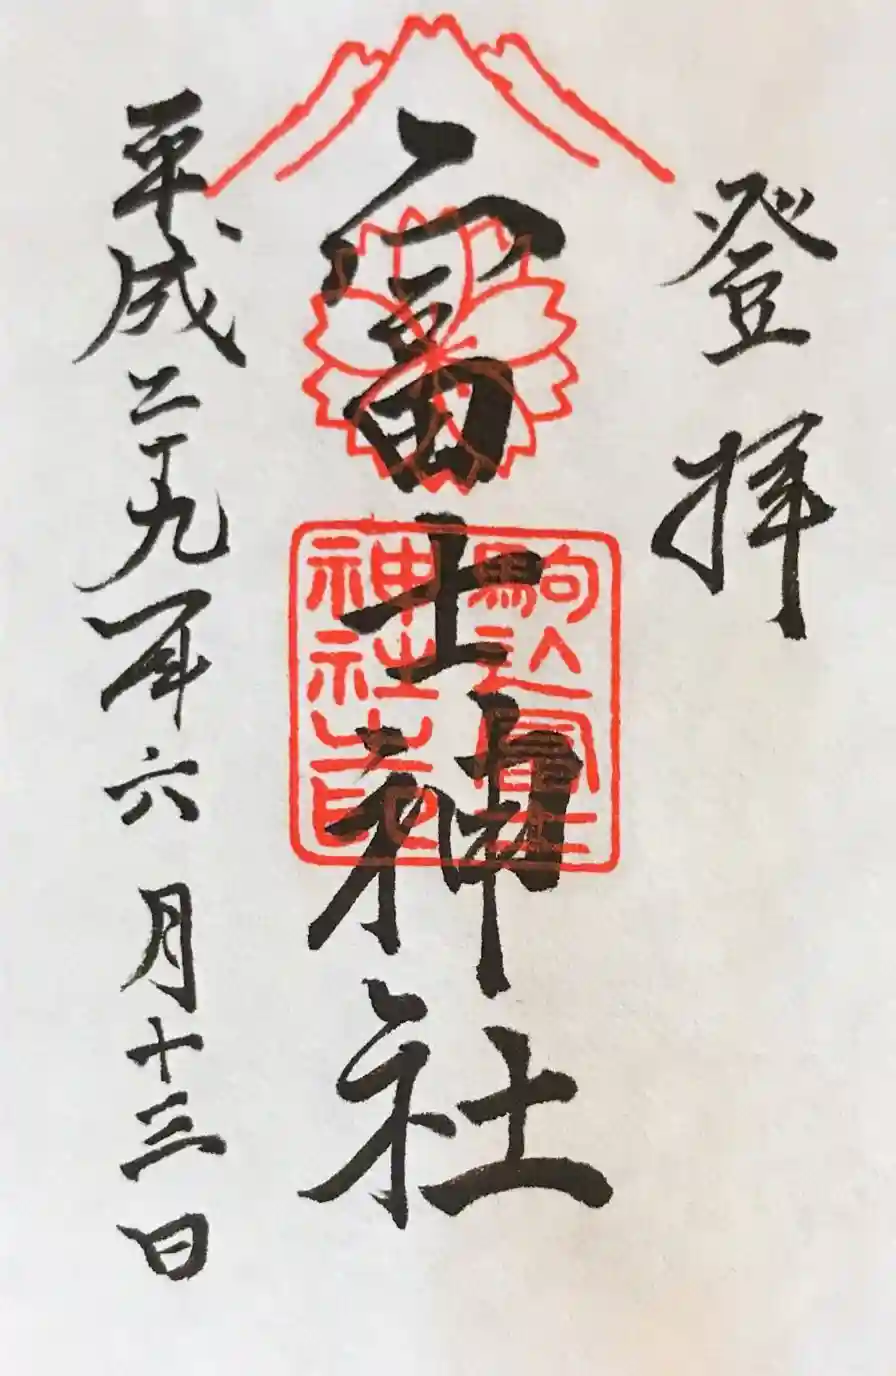 登拝
富士神社
駒込富士
神社之印
平成二十九年六月十三日